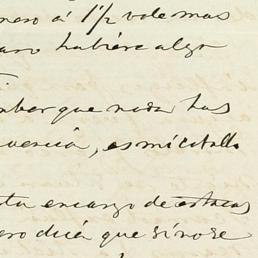 nero á 1½ vale mas
aro hubiere algo
mber que nada has
vencia, es mi
ta encargo de estacas
ero dirá que si no se